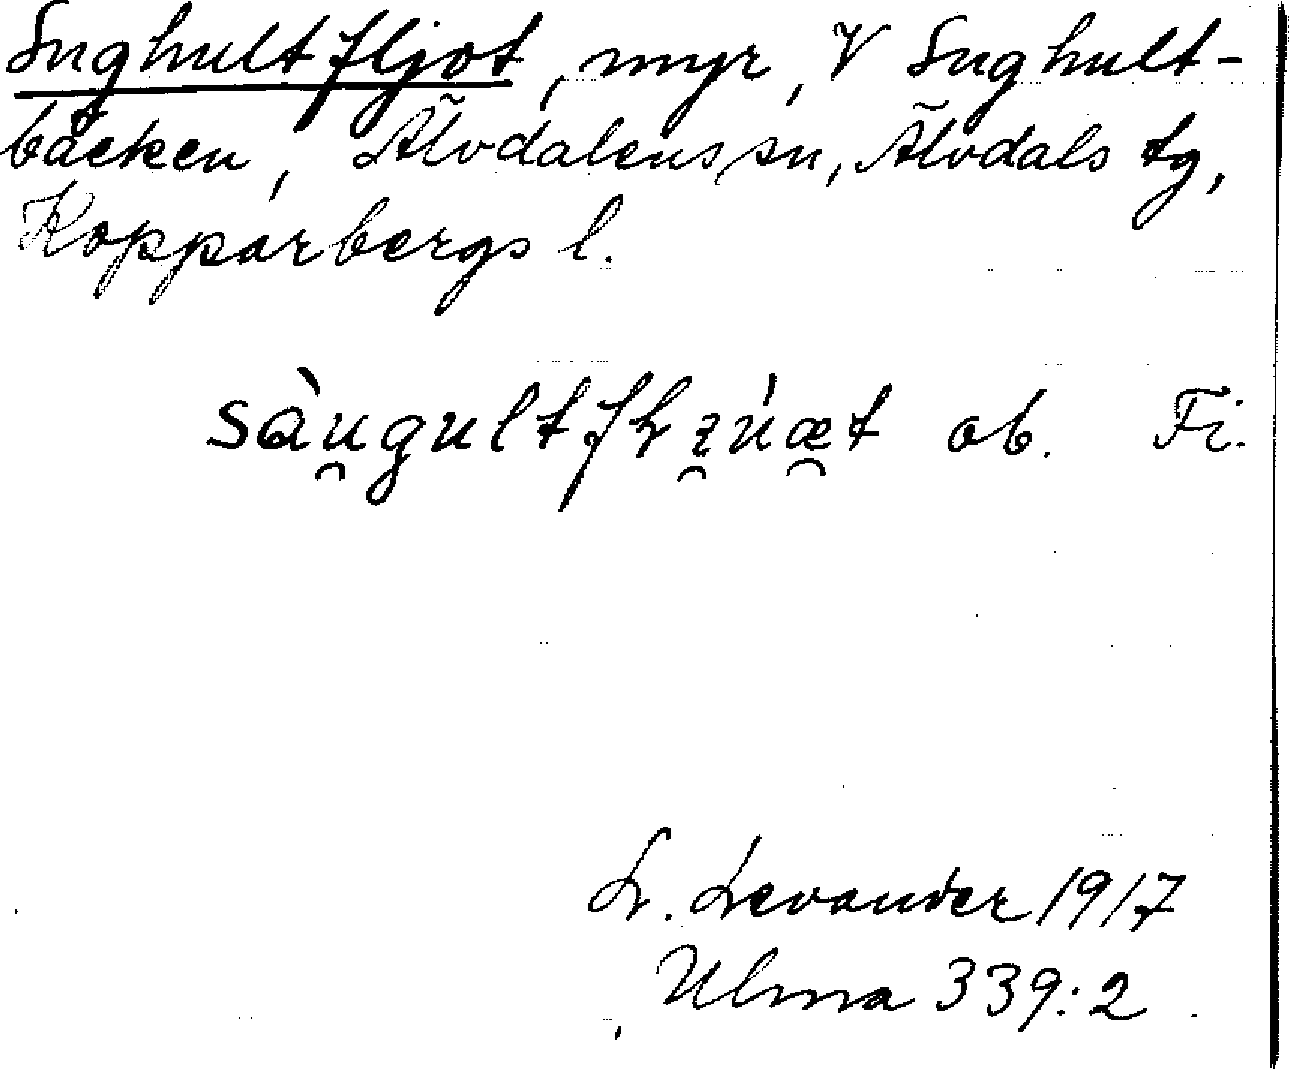 Sughultfljot, myr, V Sughult-
bäcken, Älvdalens sn, Älvdals tg,
Kopparbergs l.
sàu̯gultfLi̯úæ̯t ob. Fi.
L. Levander 1917
Ulma 339:2